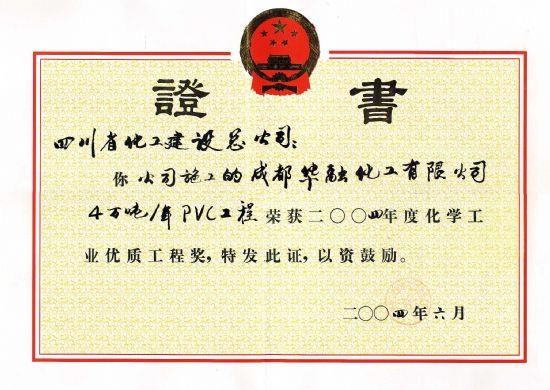 證書
四川省化工建设总公司：
你公司施工的成都华融化工有限公司
4万吨/年PVC工程荣获二〇〇四年度化学工
业优质工程奖，特发此证，以资鼓励。
二〇〇四年六月